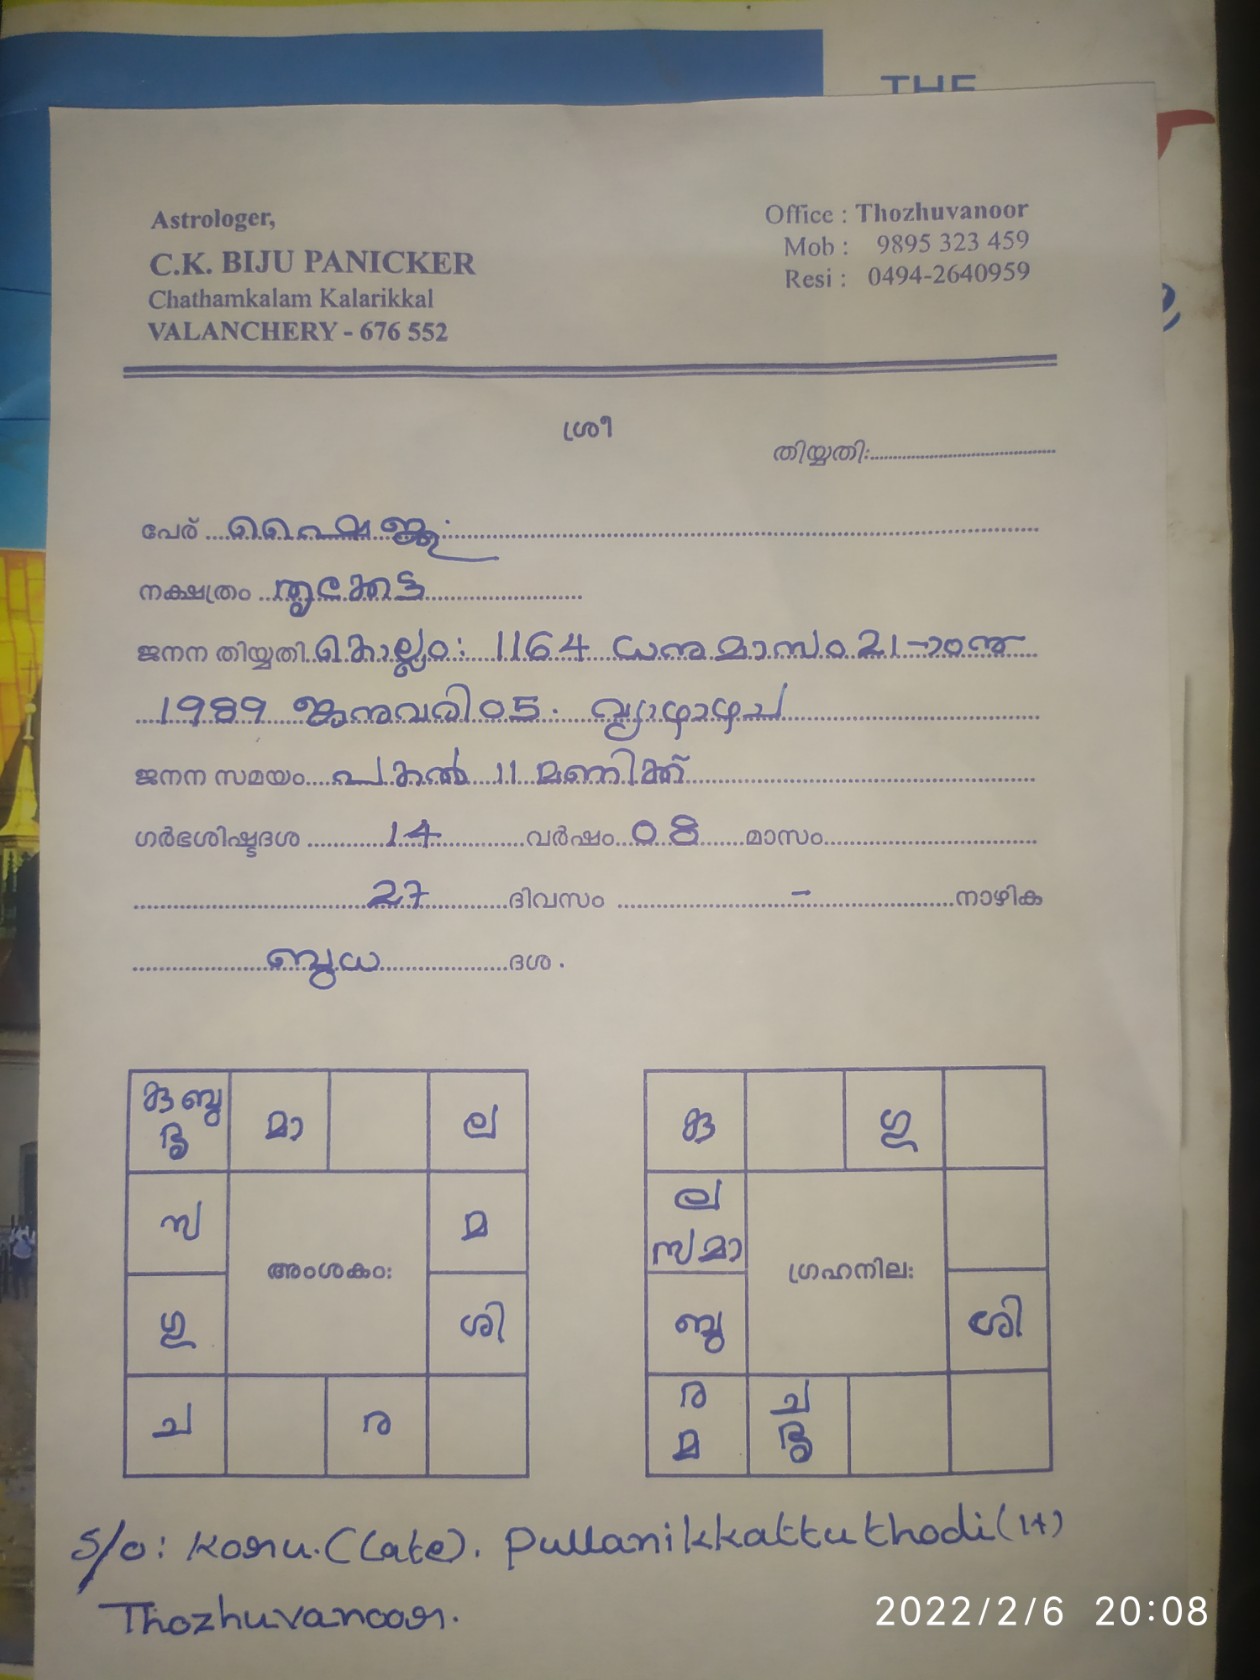 THE
Astrologer,
C.K. BIJU PANICKER
Chathamkalam Kalarikkal
VALANCHERY - 676 552
Office : Thozhuvanoor
Mob : 9895 323 459
Resi : 0494-2640959
ശ്രീ
തിയ്യതി:
പേര് ഷൈജു
നക്ഷത്രം തൃക്കേട്ട
ജനന തിയ്യതി കൊല്ലം: 1164 ധനുമാസം 21-ാംനു
1989 ജനുവരി 05. വ്യാഴാഴ്ച
ജനന സമയം പകൽ 11 മണിക്ക്
ഗർഭശിഷ്ടദശ 14 വർഷം 08 മാസം
27 ദിവസം - നാഴിക
ബുധ ദശ.
കു ബു
മാ
ല
സ
മ
അംശകം:
ഗു
ശി
ച
ര
കു
ഗു
ല
സ മാ
ഗ്രഹനില:
ബു
ശി
ര
ച
മ
S/o: Koru.(Late). Pullanikkattuthodi(H)
Thozhuvanoor.
2022/2/6 20:08